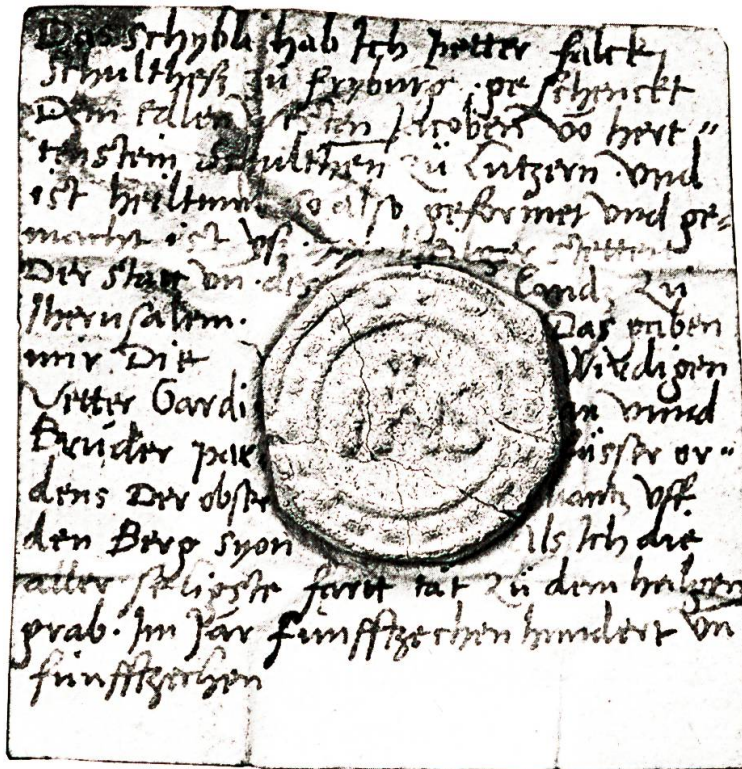 Das schybli hab Ich petter falck
Schulthesz zu fryburg geschenckt
Dem Edlen vesten Jacoben vo hert„
tenstein Schulthen zu Lutzern und
ist heiltum so also geformet und ge„
macht ist vsz heiliger stetten
Der statt vn des Lannd, zu
Jherusalem. Das gaben
mir Die Wirdigen
Vetter Gardi an vnnd
Bruder par üsser or„
dens Der obser vantz vff
den Berg syon Als Ich die
aller seligste fartt tät zu dem heilgen
grab. Im Jar funfftzechen hundert vn
funfftzechen